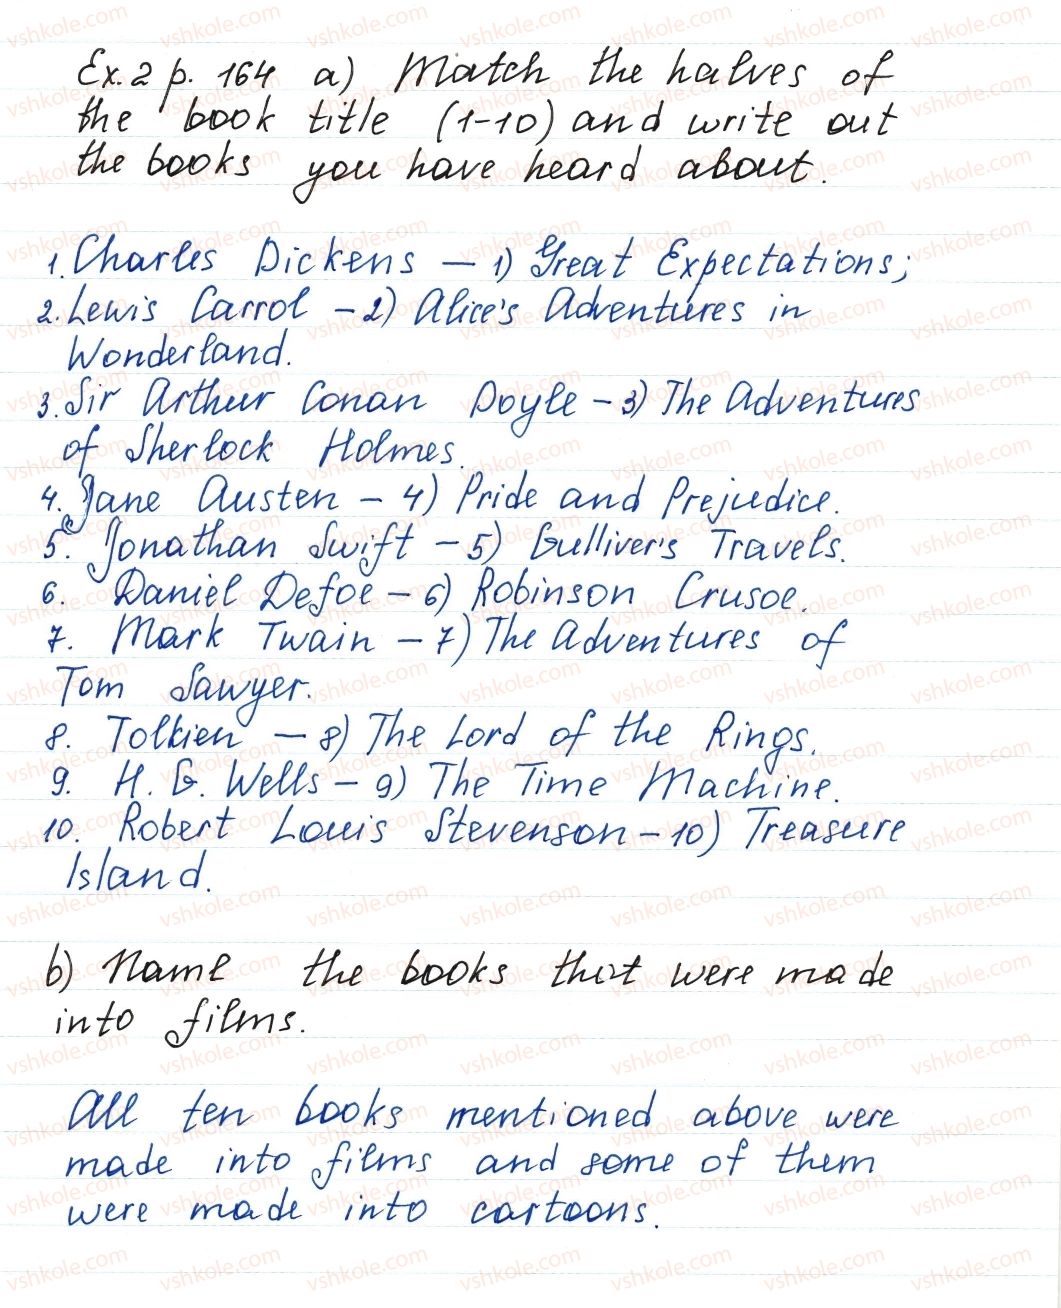 Ex. 2 p. 164 a) Match the halves of
the book title (1-10) and write out
the books you have heard about.
1. Charles Dickens – 1) Great Expectations;
2. Lewis Carrol – 2) Alice's Adventures in
Wonderland.
3. Sir Arthur Conan Doyle – 3) The Adventures
of Sherlock Holmes.
4. Jane Austen – 4) Pride and Prejudice.
5. Jonathan Swift – 5) Gulliver's Travels.
6. Daniel Defoe – 6) Robinson Crusoe.
7. Mark Twain – 7) The Adventures of
Tom Sawyer.
8. Tolkien – 8) The Lord of the Rings.
9. H. G. Wells – 9) The Time Machine.
10. Robert Louis Stevenson – 10) Treasure
Island.
b) Name the books that were made
into films.
All ten books mentioned above were
made into films and some of them
were made into cartoons.